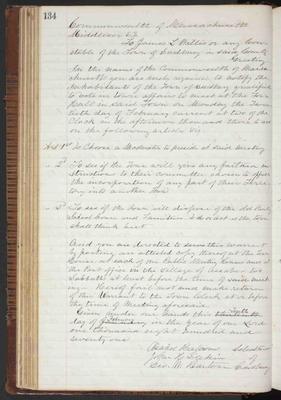 134
Commonwealth of Massachusetts
Middlesex SS
To James L. Willis or any Constable of the Town of Sudbury in said County
Greeting
In the name of the Commonwealth of Massachusetts you are hereby required to notify the
Inhabitants of the Town of Sudbury qualified
to vote in town affairs to meet at the Town
Hall in said Town on Monday the
day of February current at two of the
Clock in the afternoon then and there to act
on the following articles viz.
Art 1st To Choose a Moderator to preside at said meeting
2d To see if the town will give any further instructions to their committee chosen to oppose
the incorporation of any part of their Territory into another Town
3 To see if the town will dispose of the old
School house and Furniture & do or act as the town
shall think best
And you are directed to serve this warrant
by posting an attested copy thereof at the Town
House at each of the Public Meeting houses and at
the Post office in the Village of Assabet two
Sabbaths at least before the time of said meeting. Hereof fail not and make return
of this Warrant to the Town Clerk at or before
the time of meeting aforesaid
Given under our hands this
day of February in the year of our Lord
one thousand eight hundred and
seventy one
Selectmen
John H.
of
Geo. W.
Sudbury